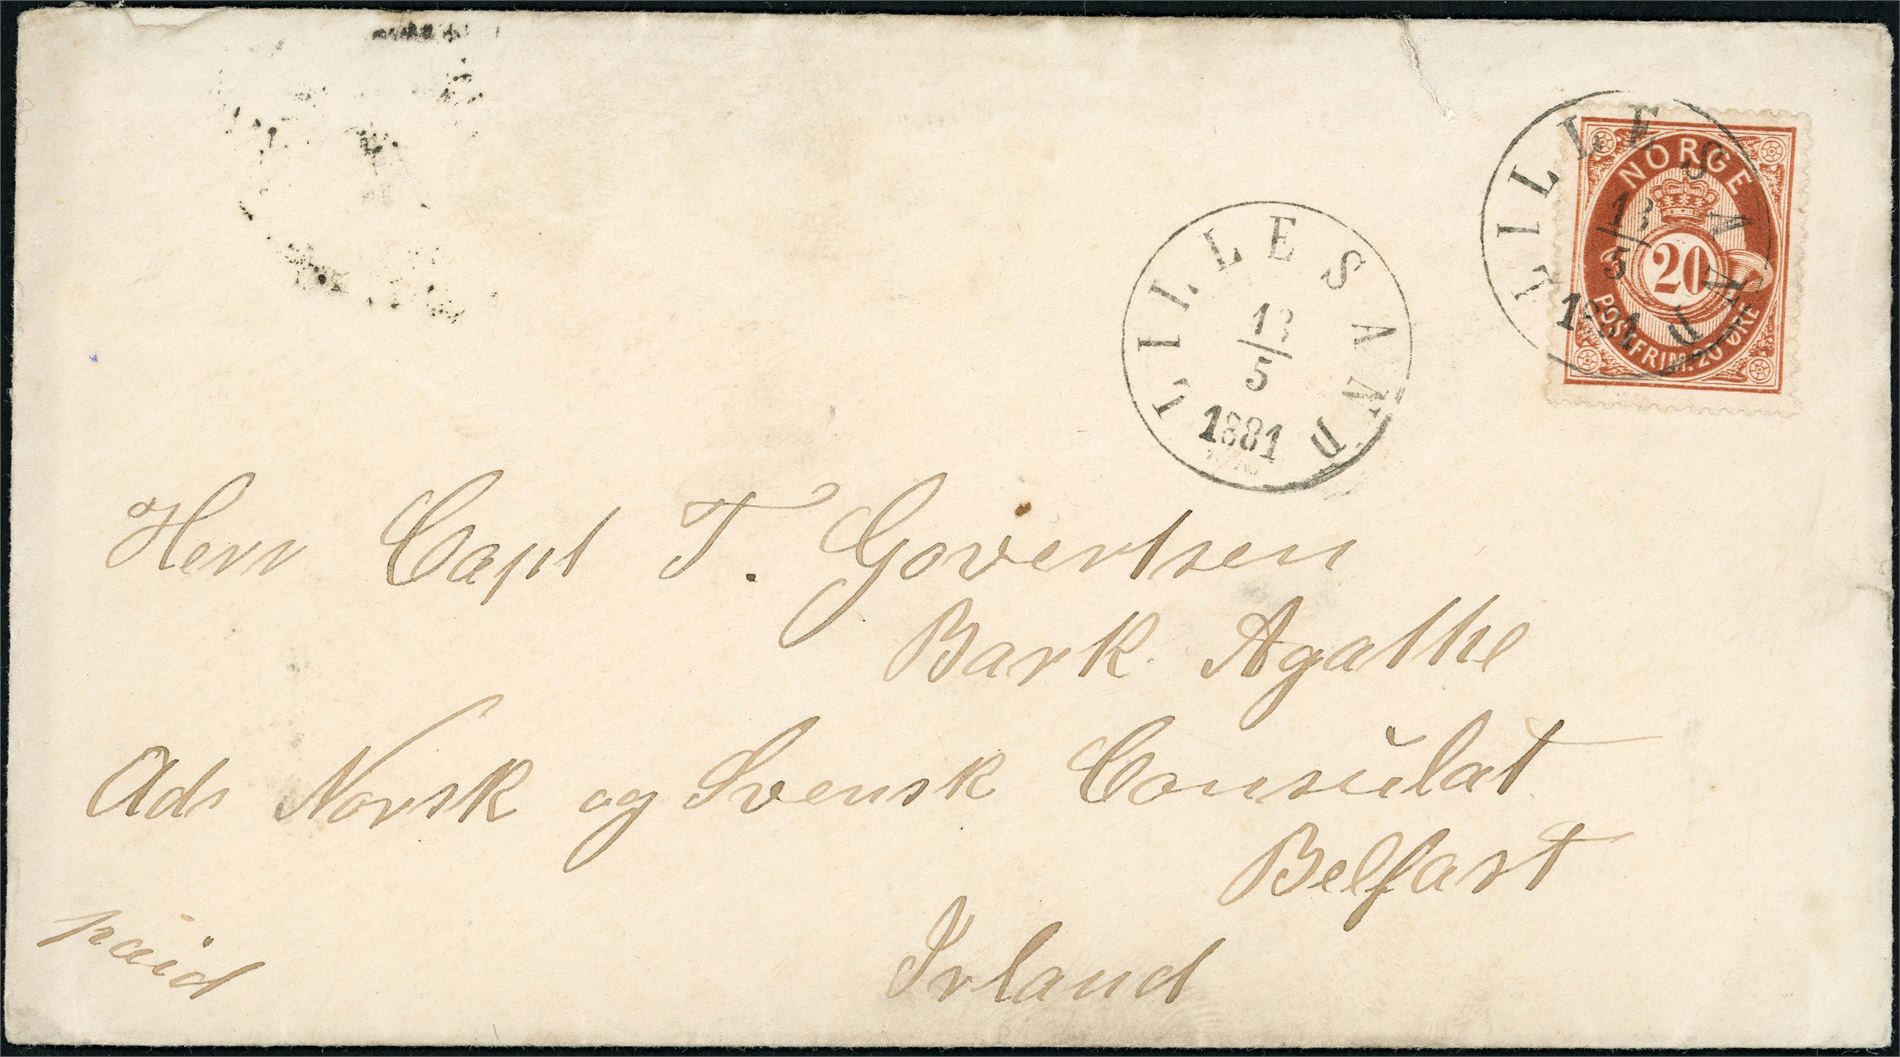 LILLESAND
13
5
1881
NORGE
20
POSTFRIM. 20 ØRE
LILLESAND
13
5
1881
Herr Capt T. Govertsen
Bark Agathe
Ads Norsk og Svensk Consulat
Belfast
Irland
paid